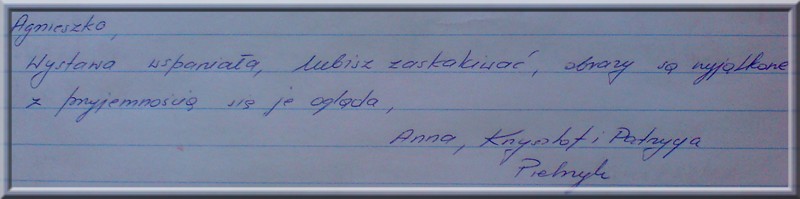 Agnieszko,
Wystawa wspaniała, lubisz zaskakiwać, obrazy są wyjątkowe
z przyjemnością się je ogląda,
Anna, Krzysztof i Patrycja